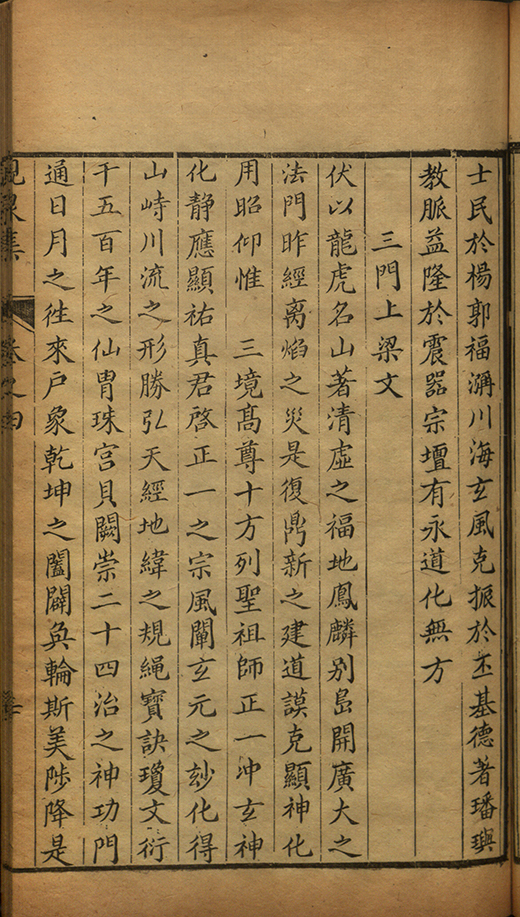 士民於楊郭福瀰川海玄風克振於丕基德著璠璵
教脈益隆於震器宗壇有永道化無方
三門上梁文
伏以龍虎名山著清虛之福地鳳麟别島開廣大之
法門昨經离焰之災是復鼎新之建道謨克顯神化
用昭仰惟　三境髙尊十方列聖祖師正一冲玄神
化静應顯祐真君啓正一之宗風闡玄元之玅化得
山峙川流之形勝弘天經地緯之規繩寶訣瓊文衍
千五百年之仙胄珠宫貝闕崇二十四治之神功門
通日月之徃來戶象乾坤之闔闢奐輪斯美陟降是
峴泉集　卷之四